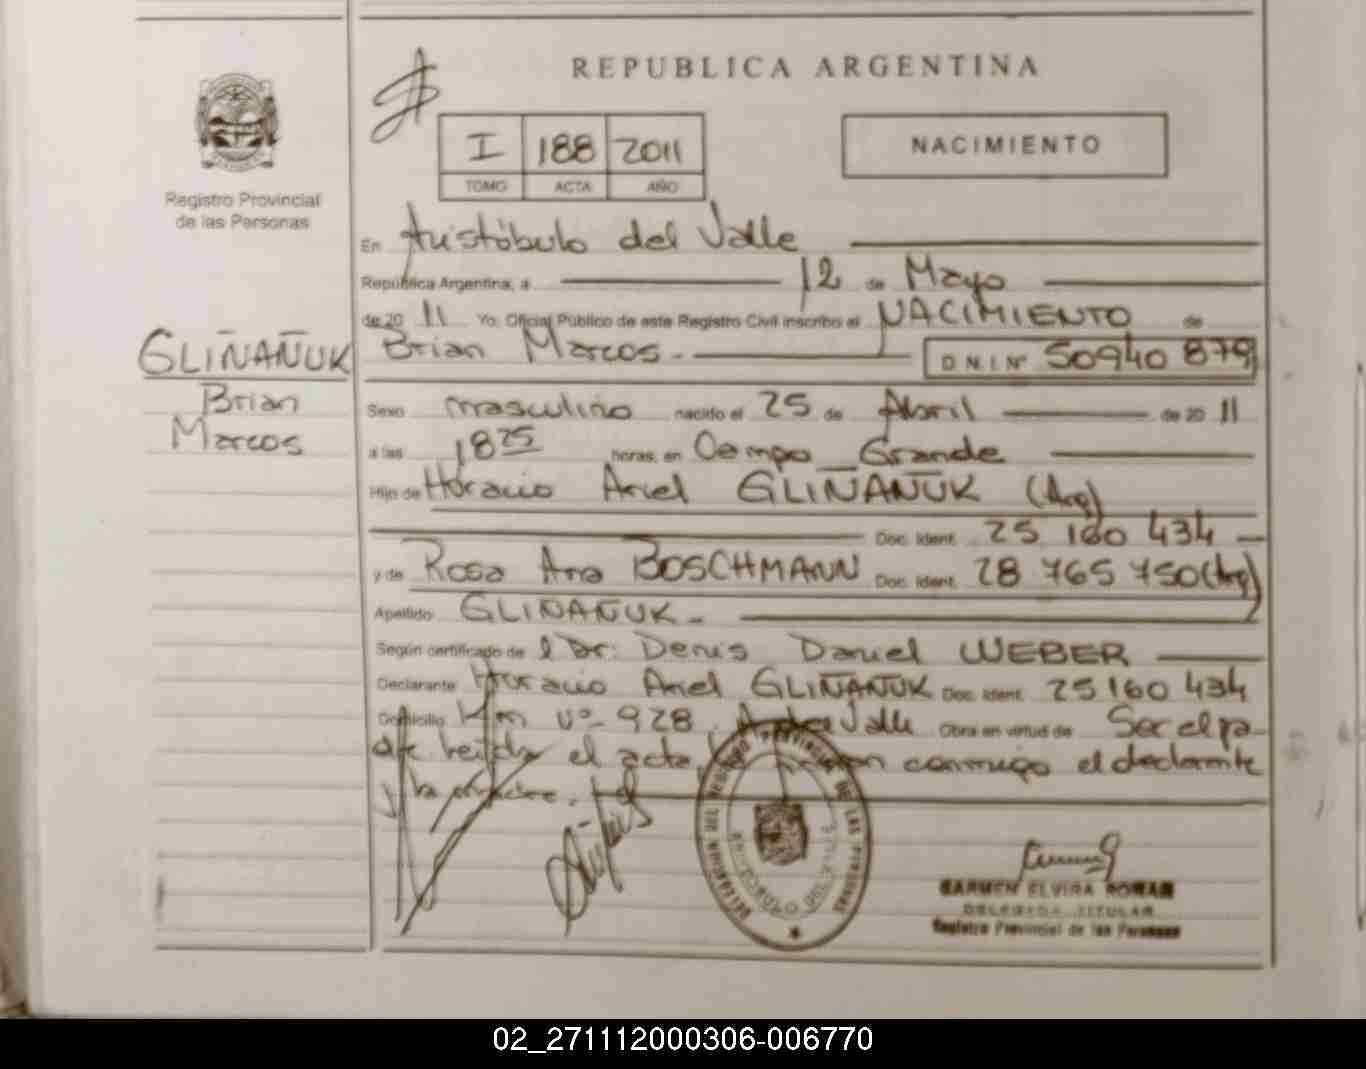 REPUBLICA ARGENTINA
Registro Provincial
de las Personas
I 188 2011
TOMO ACTA AÑO
NACIMIENTO
En Aristóbulo del Valle
República Argentina, a 12 de Mayo
de 20 11 Yo, Oficial Público de este Registro Civil inscribo el NACIMIENTO de
Brian Marcos.-
D N I Nº 50940 879
GLIÑAÑUK
Brian
Marcos
Sexo masculino nacido el 25 de Abril de 20 11
a las 18 25 horas, en Campo Grande
Hijo de Horacio Ariel GLIÑAÑUK (Arg)
Doc. Ident. 25 160 434
y de Rosa Ana BOSCHMANN Doc. Ident. 28 765 750 (Arg)
Apellido GLIÑAÑUK.-
Según certificado de l Dr. Denis Daniel WEBER
Declarante Horacio Ariel GLIÑAÑUK Doc. Ident. 25 160 434
Domicilio Km nº 928, Valle Obra en virtud de Ser el pa-
el acta, conmigo el declarante
y la madre.
CARMEN ELVIRA ROMAN
DELEGADA TITULAR
Registro Provincial de las Personas
02_271112000306-006770